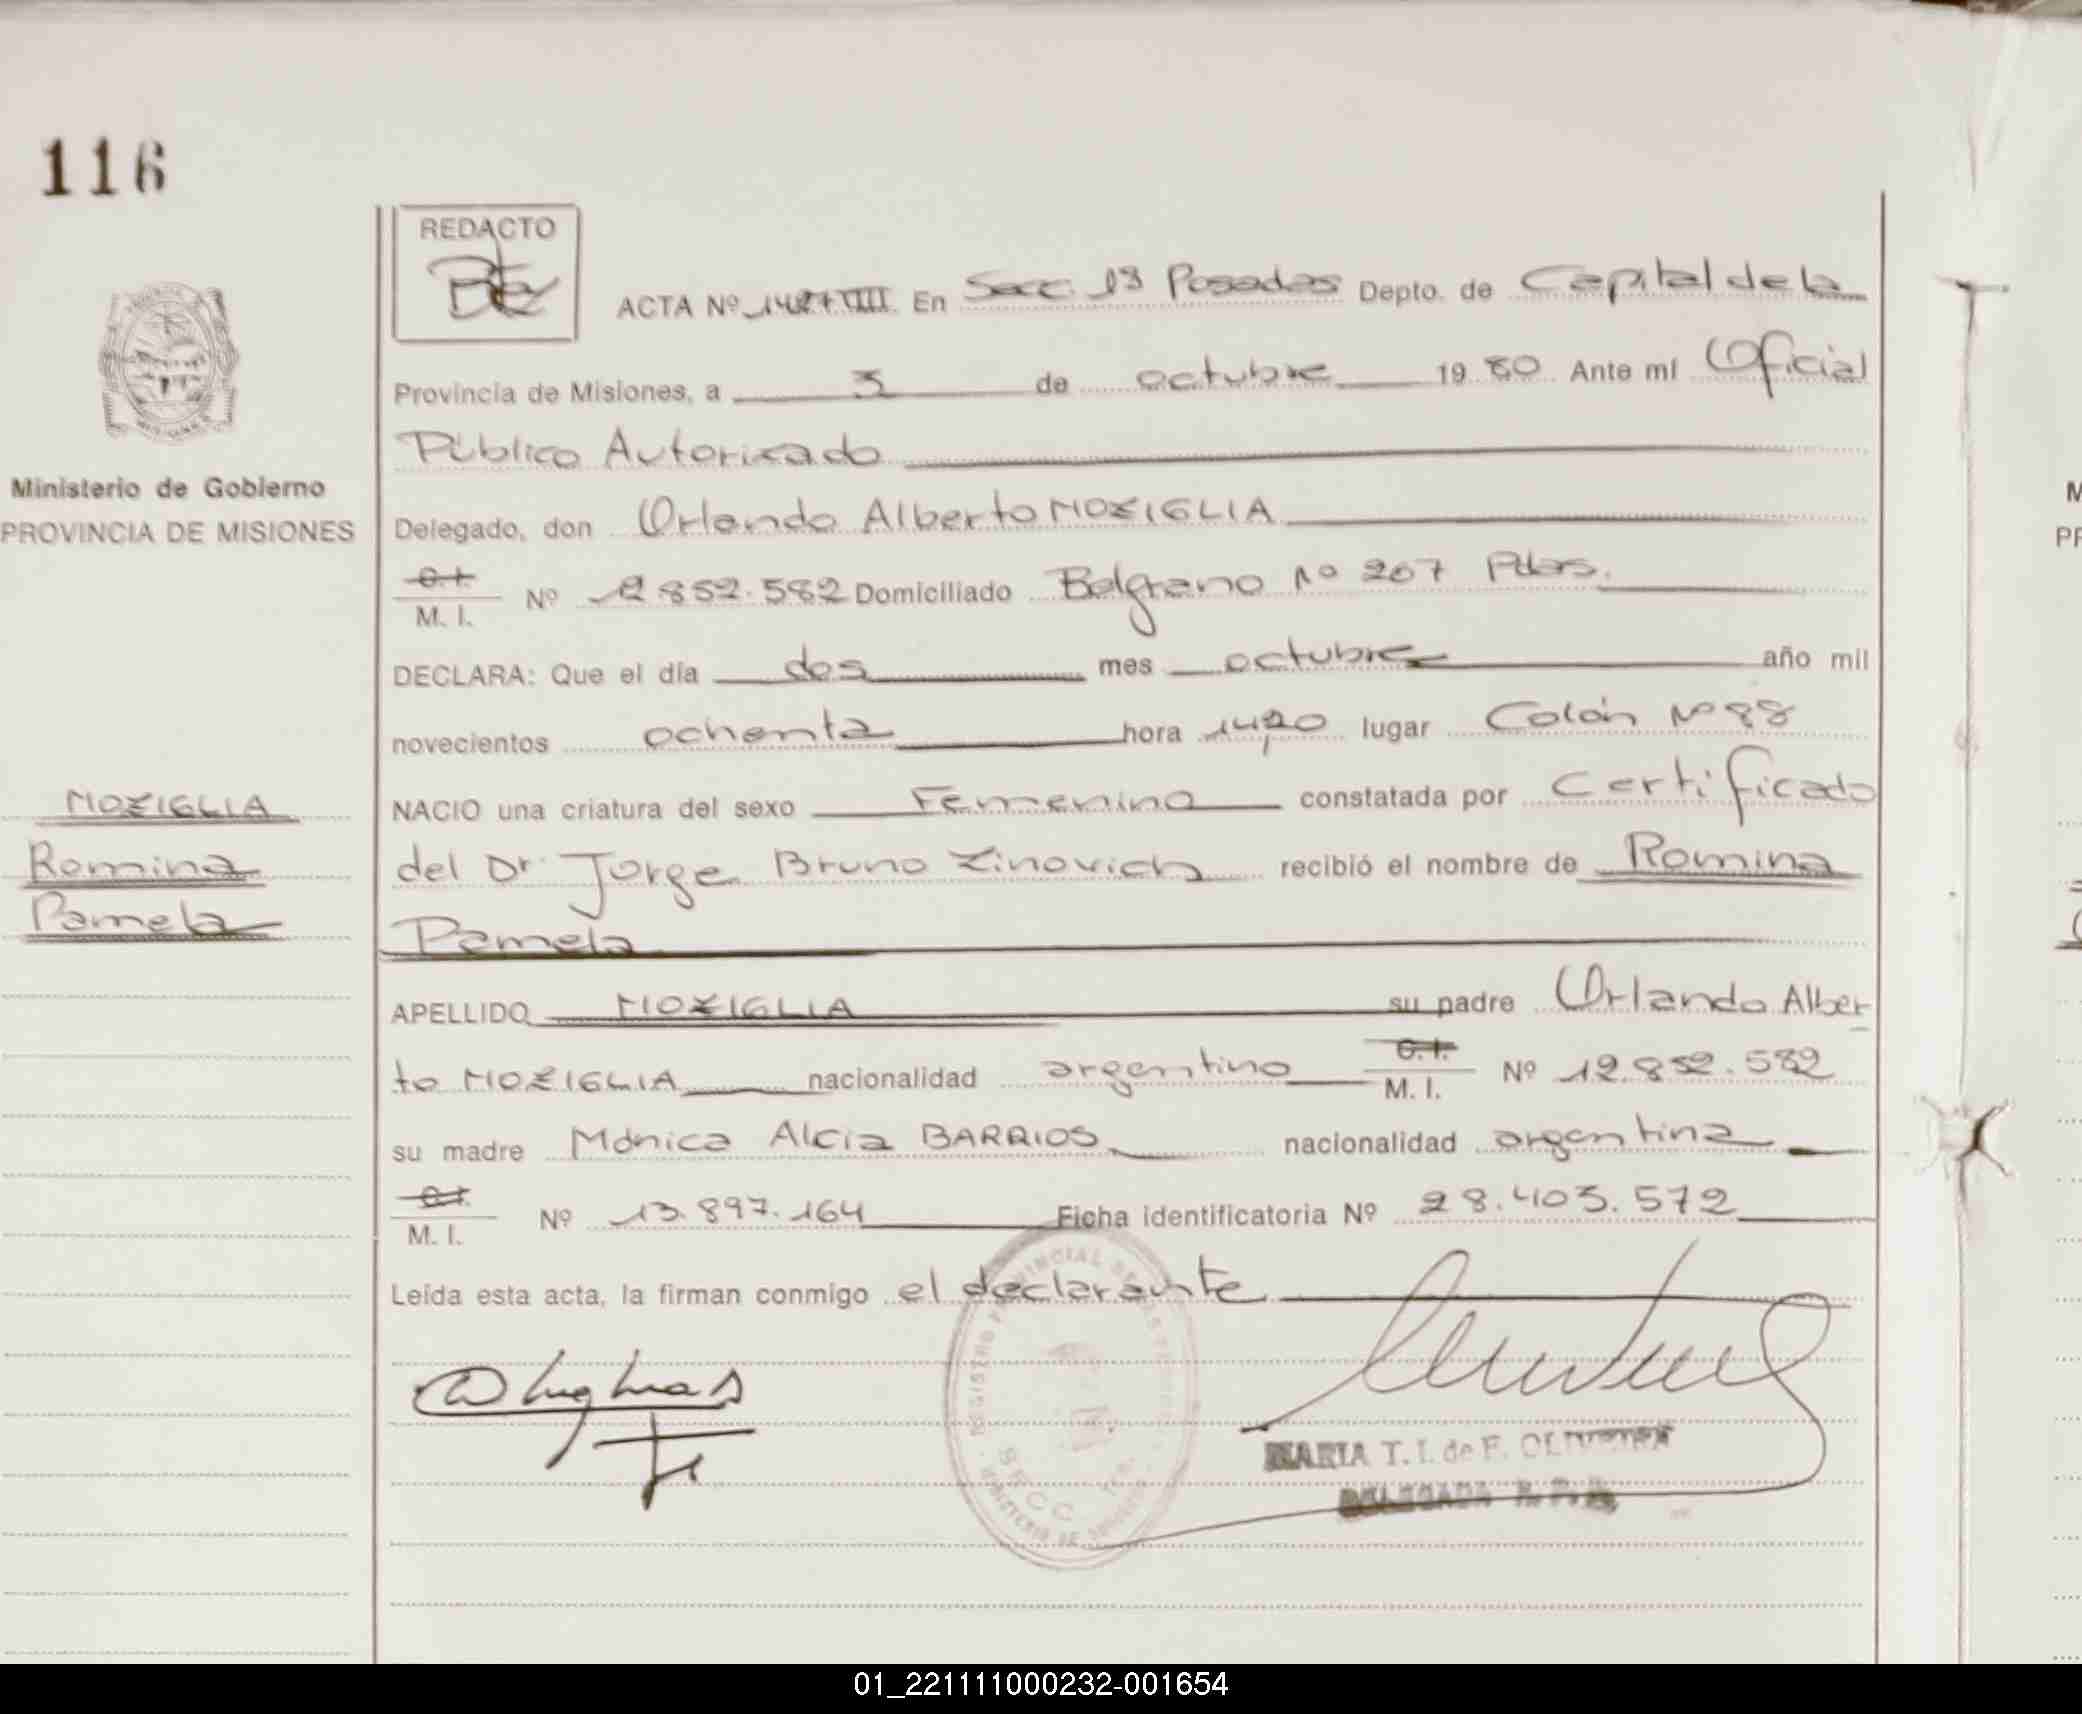 116
REDACTO
ACTA Nº 1427 TIII En Secc. 13 Posadas Depto. de Capital de la
Provincia de Misiones, a 3 de octubre 1980 Ante mí Oficial
Público Autorizado
Ministerio de Gobierno
PROVINCIA DE MISIONES
Delegado, don Orlando Alberto MOZIGLIA
C.I.
M. I. Nº 12.852.582 Domiciliado Belgrano Nº 207 Pdas.
DECLARA: Que el día dos mes octubre año mil
novecientos ochenta hora 14,20 lugar Colón Nº 88
MOZIGLIA
Romina
Pamela
NACIO una criatura del sexo Femenino constatada por Certificado
del Dr Jorge Bruno Zinovich recibió el nombre de Romina
Pamela
APELLIDO MOZIGLIA su padre Orlando Alber
to MOZIGLIA nacionalidad argentino C.I. M. I. Nº 12.852.582
su madre Mónica Alcia BARRIOS nacionalidad argentina
C.I.
M. I. Nº 13.897.164 Ficha identificatoria Nº 28.403.572
Leída esta acta, la firman conmigo el declarante
MARIA T. I. de F.
DELEGADA R. P. P.
01_221111000232-001654